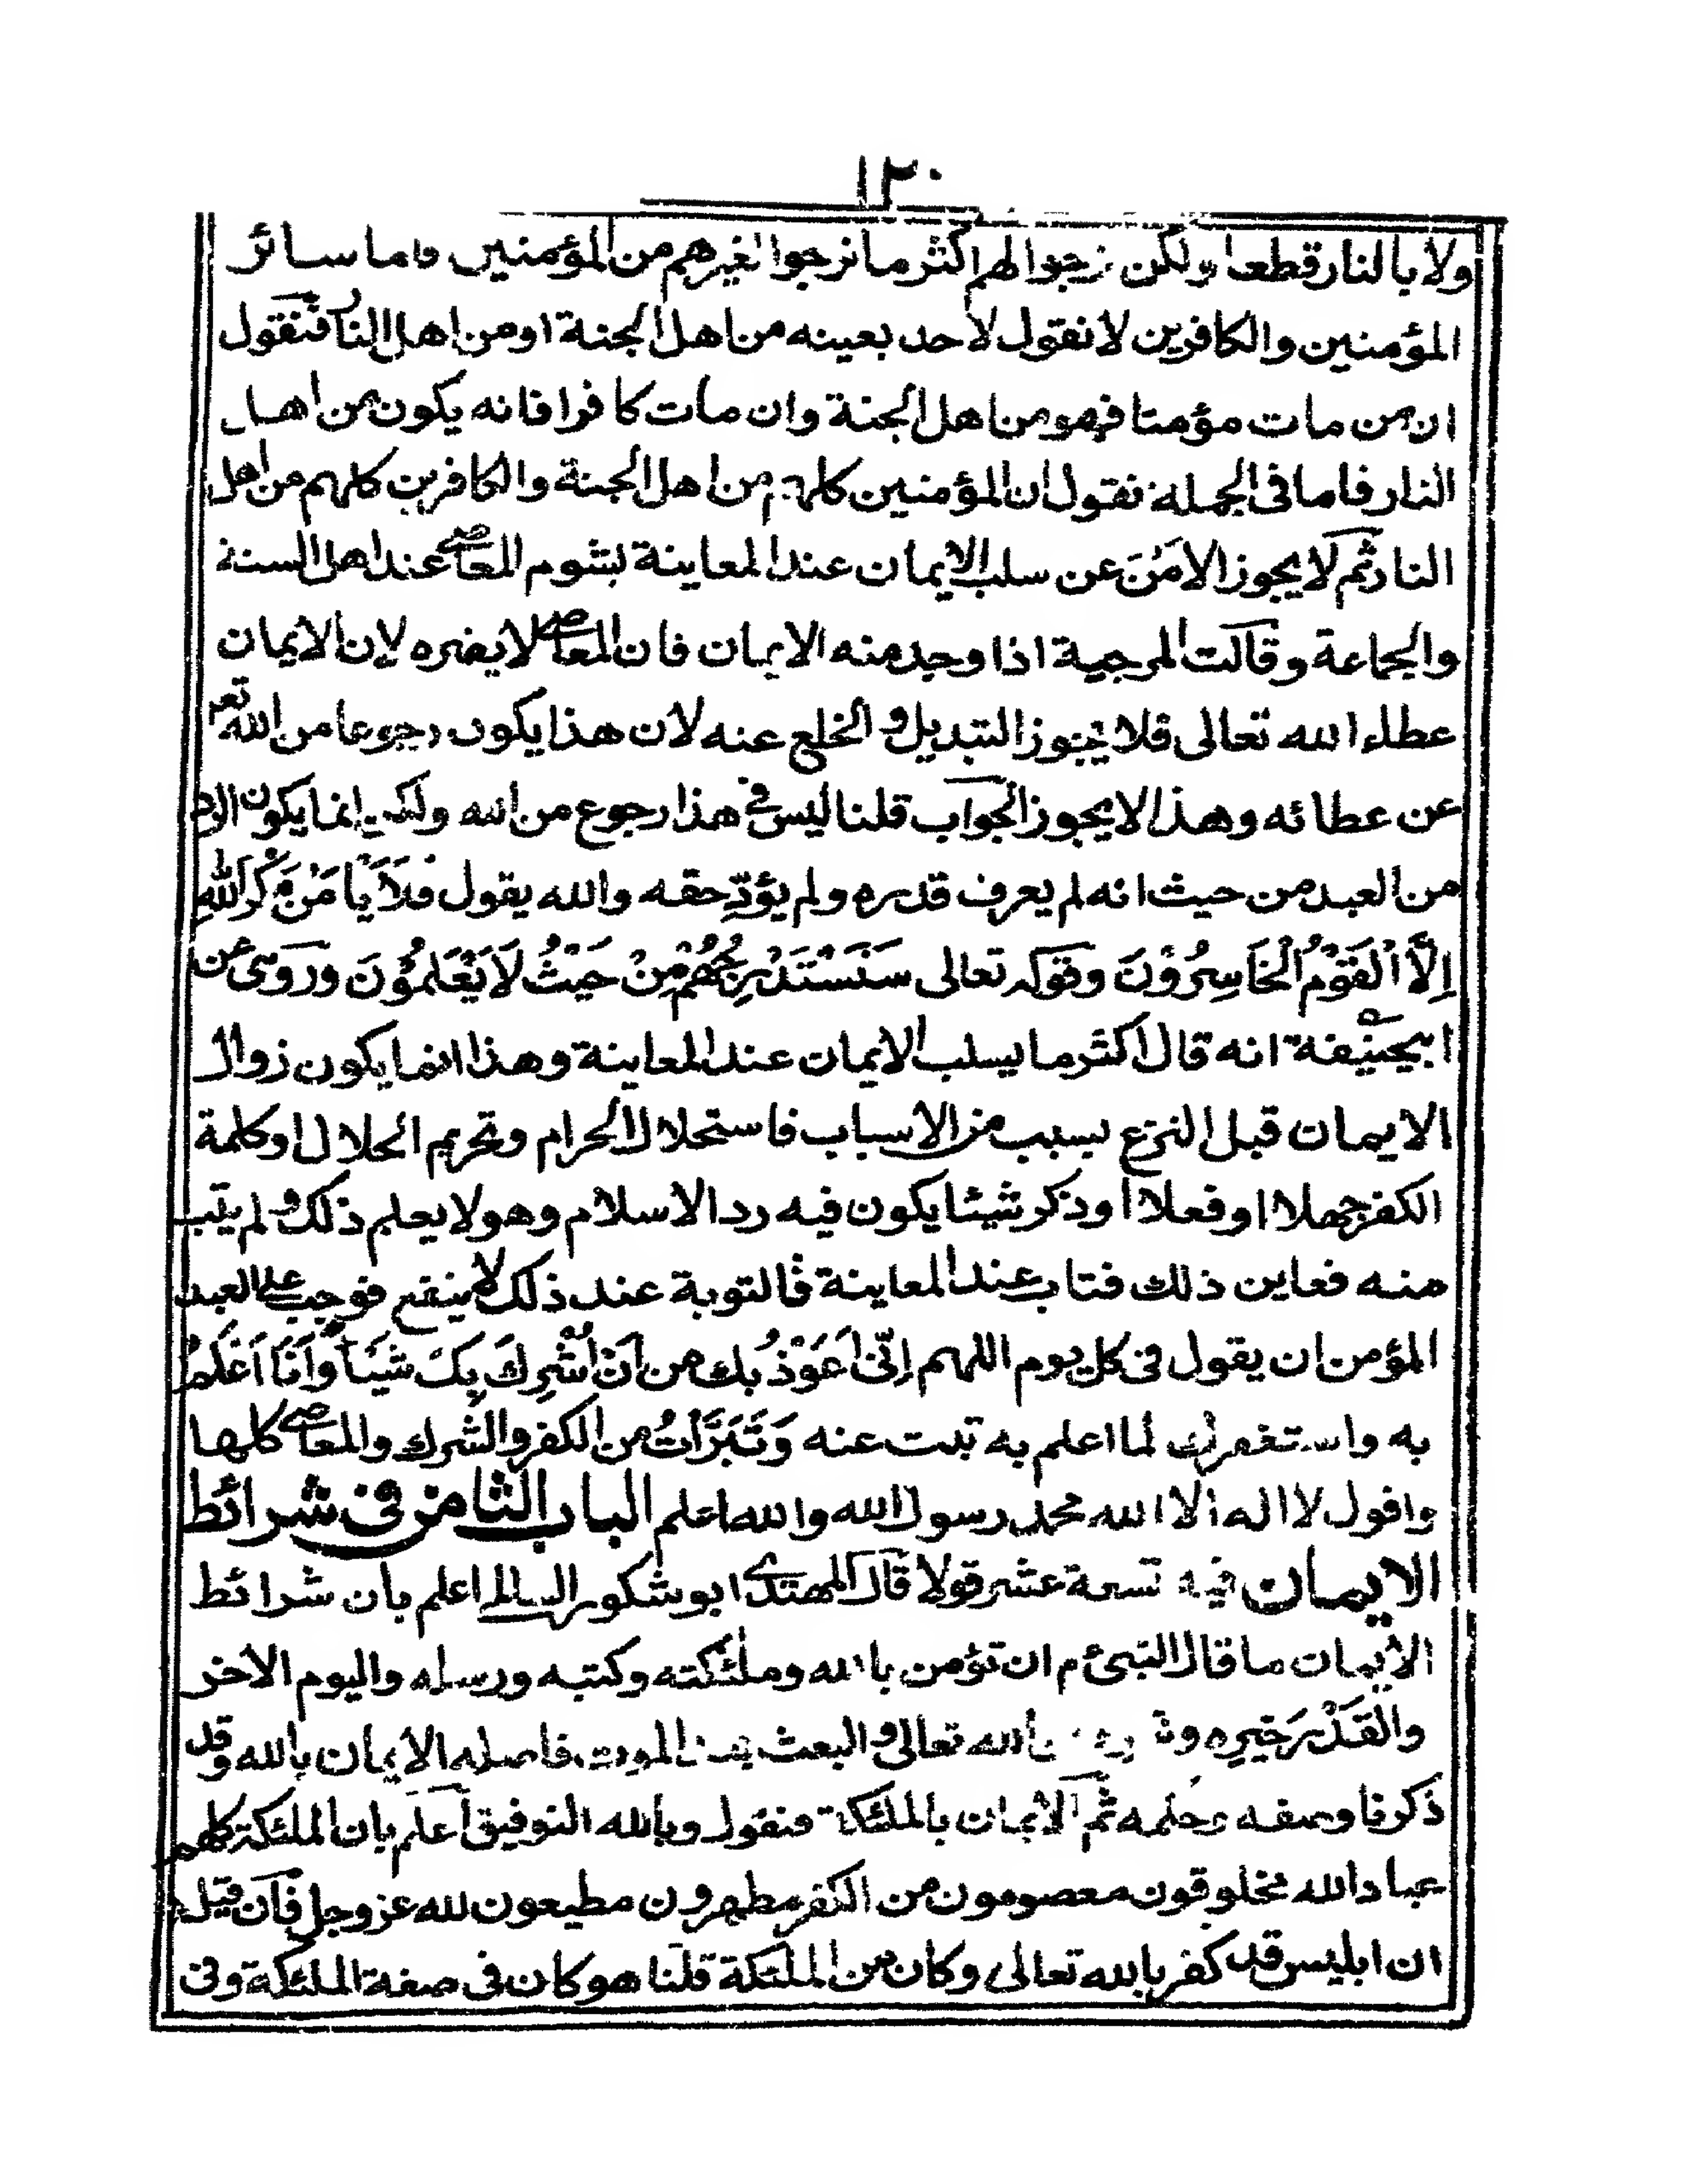 ١٢٠
ولا بالنار قطعا ولكن نرجوا لهم اكثر ما نرجوا لغيرهم من المؤمنين فاما سائر
المؤمنين والكافرين لا نقول لاحد بعينه من اهل الجنة او من اهل النار فنقول
ان من مات مؤمنا فهو من اهل الجنة وان مات كافرا فانه يكون من اهل
النار فاما فى الجملة نقول ان المؤمنين كلهم من اهل الجنة والكافرين كلهم من اهل
النار ثم لا يجوز الامن عن سلب الايمان عند المعاينة بشوم المعاصى عند اهل السنة
والجماعة وقالت المرجية اذا وجد منه الايمان فان المعاصى لا يضره لان الايمان
عطاء الله تعالى فلا يجوز التبديل و الخلع عنه لان هذا يكون رجوعا من الله تعـ
عن عطائه وهذا لا يجوز الجواب قلنا ليس فى هذا رجوع من الله ولكن انما يكون الرد
من العبد من حيث انه لم يعرف قدره ولم يؤدِّ حقه والله يقول فَلَا يَأمَنُ مَكْرَ اللهِ
اِلَّا الْقَوْمُ الْخَاسِرُوْنَ وقوله تعالى سَنَسْتَدْرِجُهُمْ مِنْ حَيْثُ لَا يَعْلَمُوْنَ وروى عن
ابيحنيفة انه قال اكثر ما يسلب الايمان عند المعاينة وهذا انما يكون زوال
الايمان قبل النزع بسبب من الاسباب فاستحلال الحرام وتحريم الحلال او كلمة
الكفر جهلا او فعلا او ذكر شيئا يكون فيه رد الاسلام وهو لا يعلم ذلك و لم يتب
منه فعاين ذلك فتاب عند المعاينة فالتوبة عند ذلك لا ينفع فوجب على العبد
المؤمن ان يقول فى كل يوم اللهم اِنِّى اَعُوْذُ بك من اَنْ اُشْرِكَ بِكَ شَيْئًا وَاَنَا اَعْلَمُ
به واستغفرك لما اعلم به تبت عنه وَتَبَرَّأتُ من الكفر والشرك والمعاصى كلها
واقول لا اله الا الله محمد رسول الله والله اعلم الباب الثامن فى شرائط
الايمان فيه تسعة عشر قولا قال المهتدى ابو شكور السالمى اعلم بان شرائط
الايمان ما قال النبى م ان تؤمن بالله وملئكته وكتبه ورسله واليوم الاخر
والقَدْرِ خَيرِه و الله تعالى و البعث بعد الموت فاصله الايمان بالله وقد
ذكرنا وصفه وحكمه ثم الايمان بالملئكة فنقول وبالله التوفيق اعلم بان الملئكة كلهم
عباد الله مخلوقون معصومون من الكفر مطهرون مطيعون لله عز وجل فان قيل
ان ابليس قد كفر بالله تعالى وكان من الملئكة قلنا هو كان فى صفة الملئكة وفى